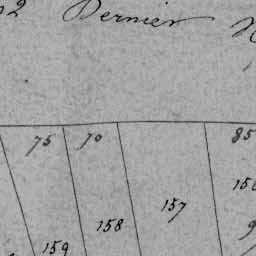 2 Dernier
75 70 85
158 157 15
159